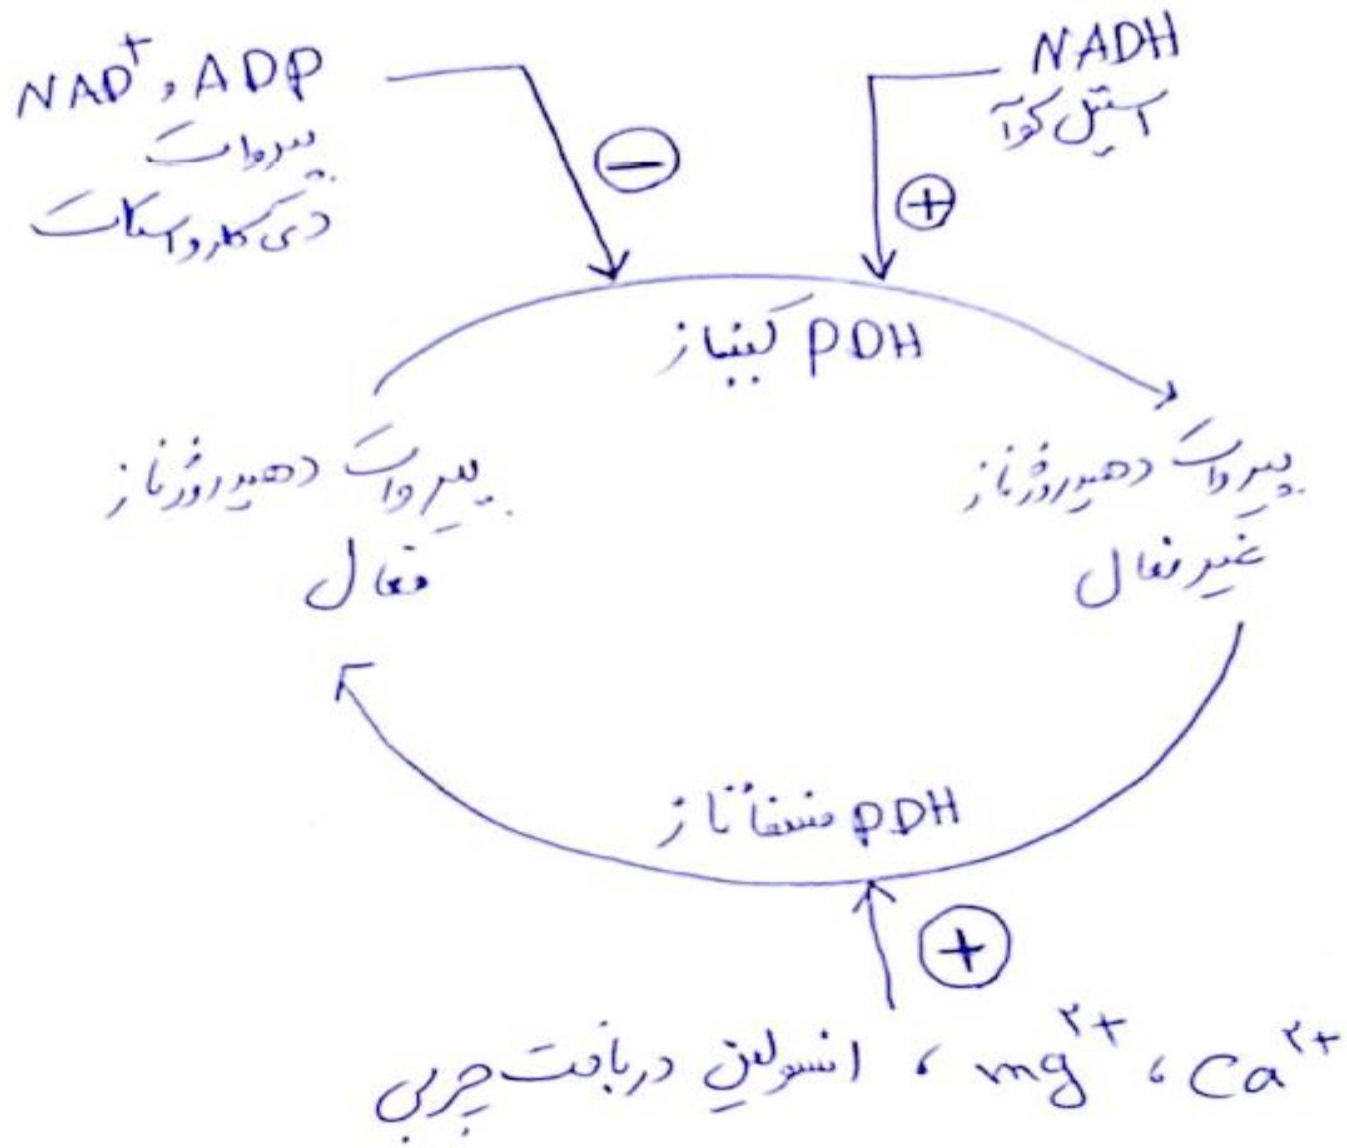 NAD⁺، ADP
پیروات
دی کلرواستات
NADH
استیل کوآ
PDH کیناز
پیروات دهیدروژناز
فعال
پیروات دهیدروژناز
غیر فعال
PDH فسفاتاز
Ca²⁺ ، mg²⁺ ، انسولین دربافت چربی